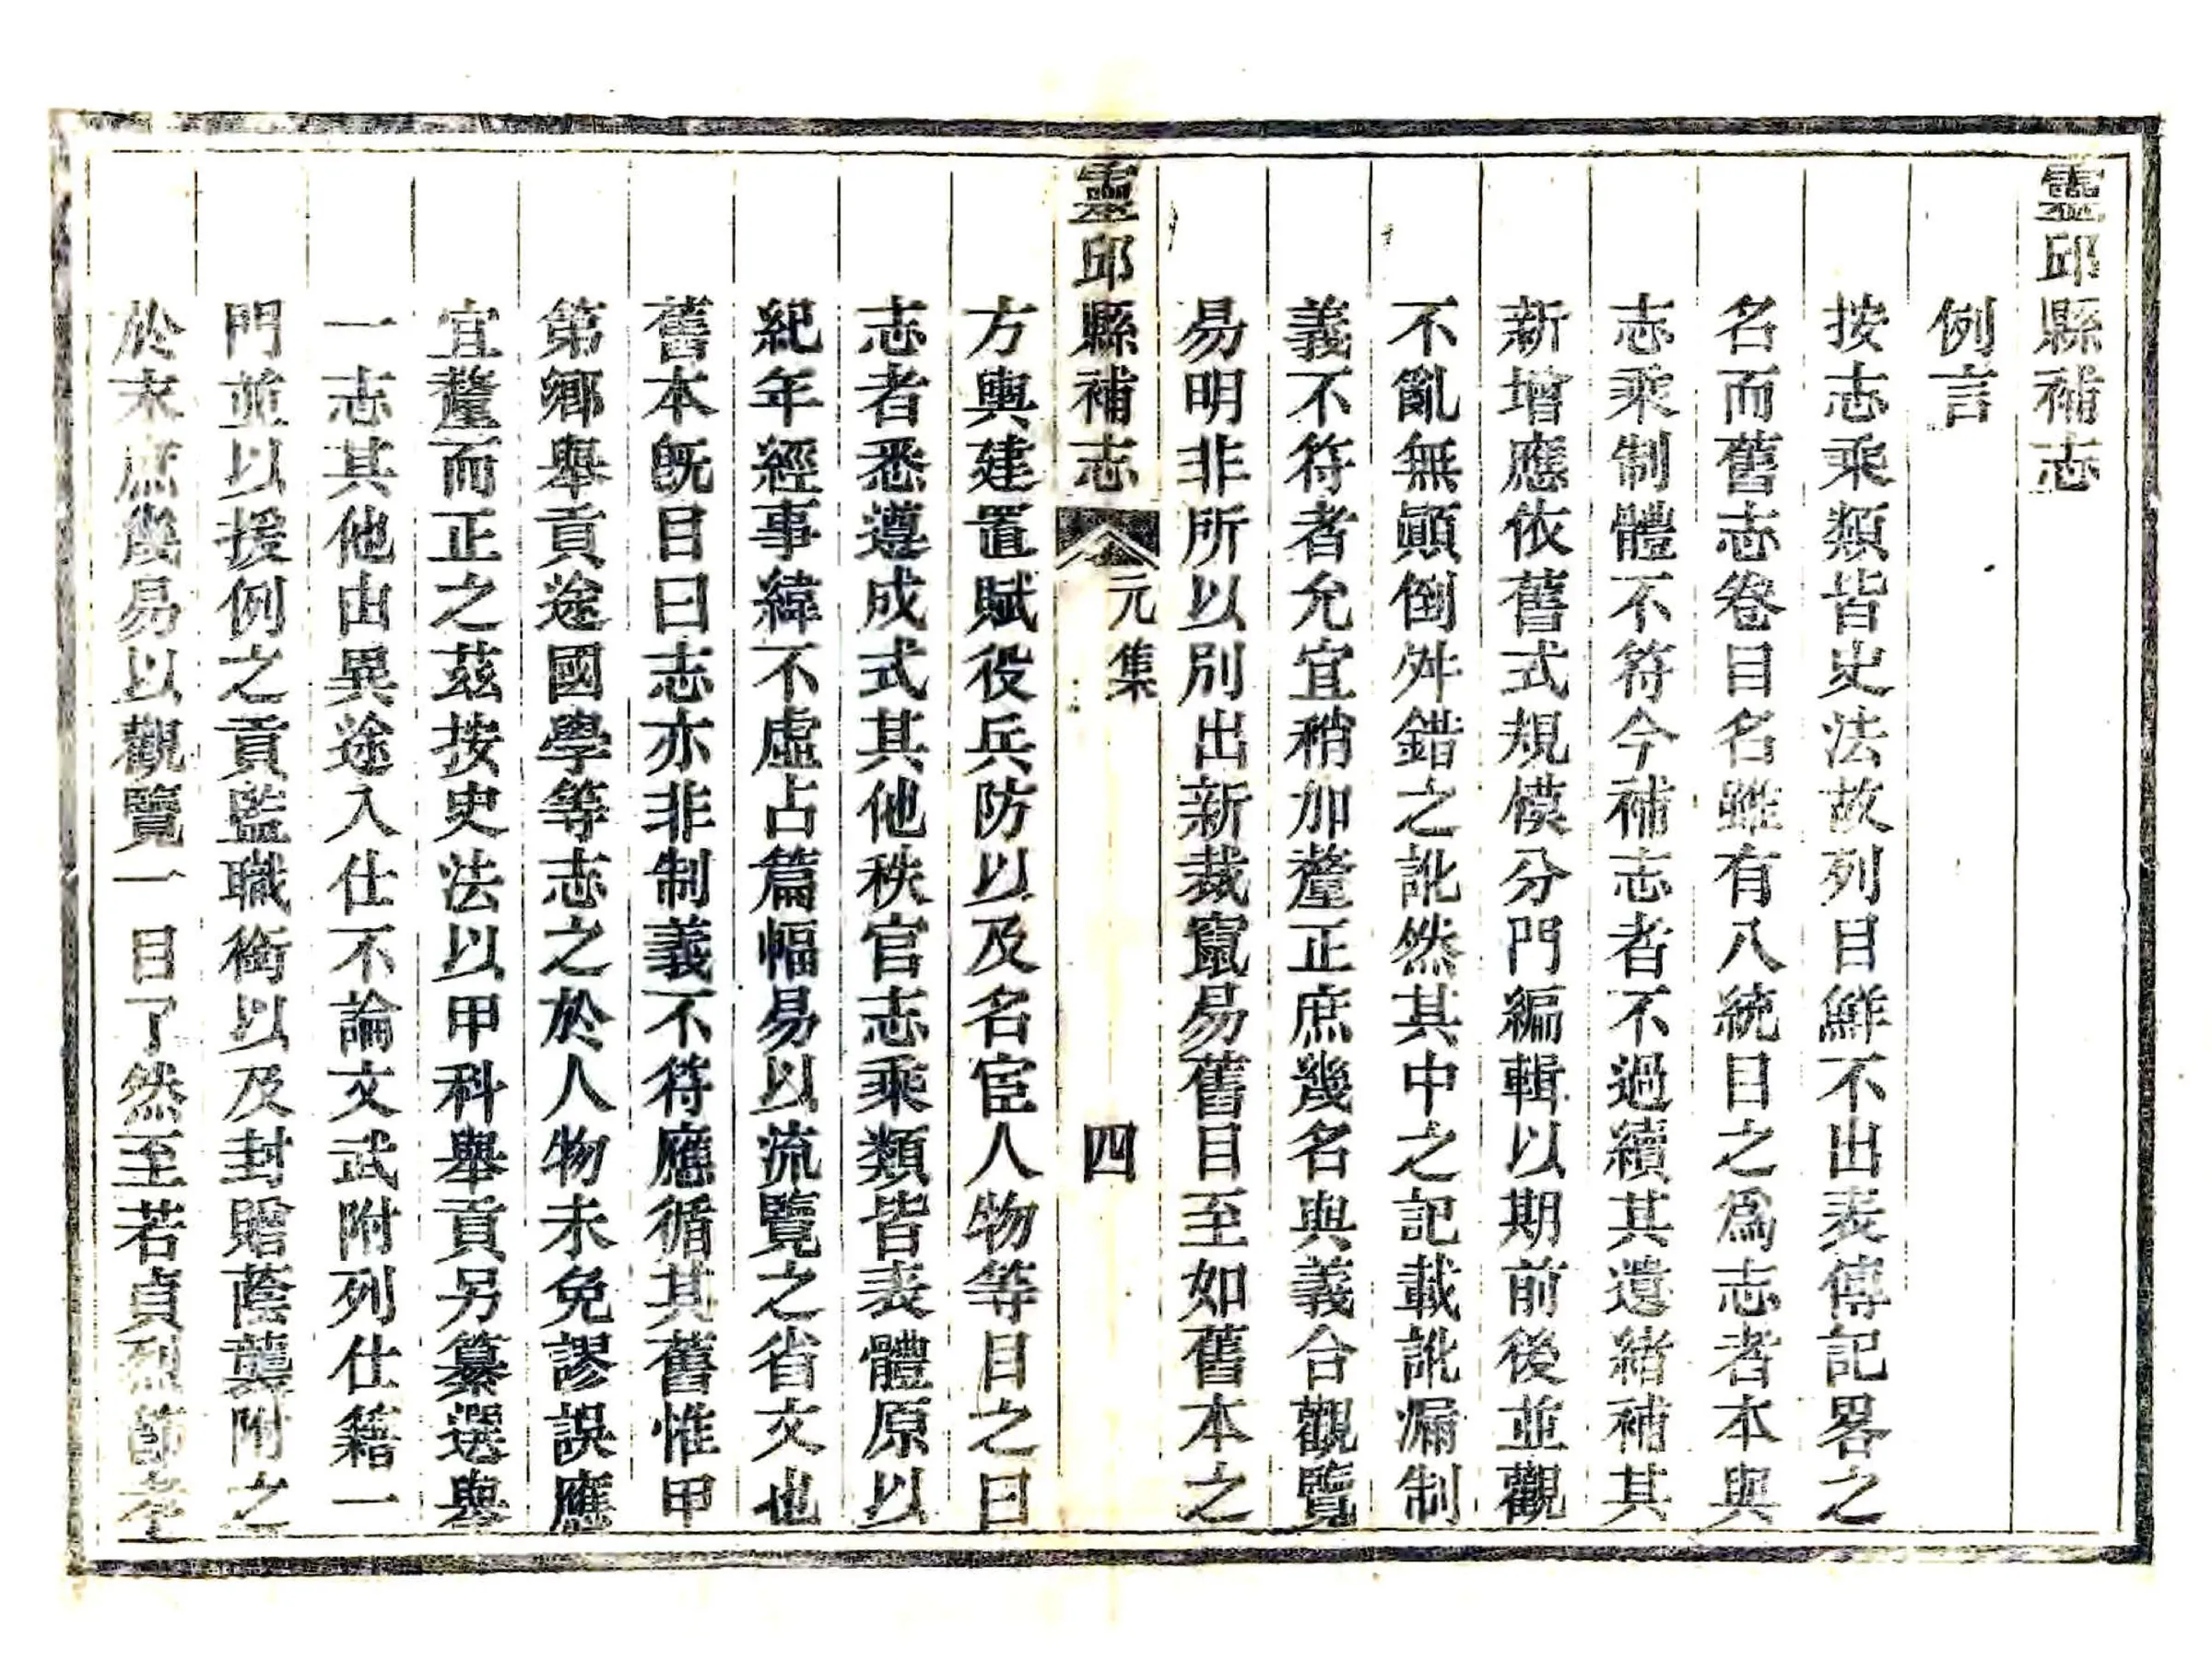 靈邱縣補志
例言
按志乘類皆史法故列目鮮不出表傳記畧之
名而舊志卷目名雖有八統目之爲志者本與
志乘制體不符今補志者不過續其遺緒補其
新增應依舊式規模分門編輯以期前後並觀
不亂無顚倒舛錯之訛然其中之記載訛漏制
義不符者允宜稍加釐正庶幾名與義合觀覽
易明非所以別出新裁竄易舊目至如舊本之
靈邱縣補志
元集
四
方輿建置賦役兵防以及名宦人物等目之曰
志者悉遵成式其他秩官志乘類皆表體原以
紀年經事緯不虛占篇幅易以流覽之省文也
舊本旣目曰志亦非制義不符應循其舊惟甲
第鄉舉貢途國學等志之於人物未免謬誤應
宜釐而正之茲按史法以甲科舉貢另纂選舉
一志其他由異途入仕不論文武附列仕籍一
門並以援例之貢監職銜以及封贈蔭襲附之
於末庶幾易以觀覽一目了然至若貞烈節孝